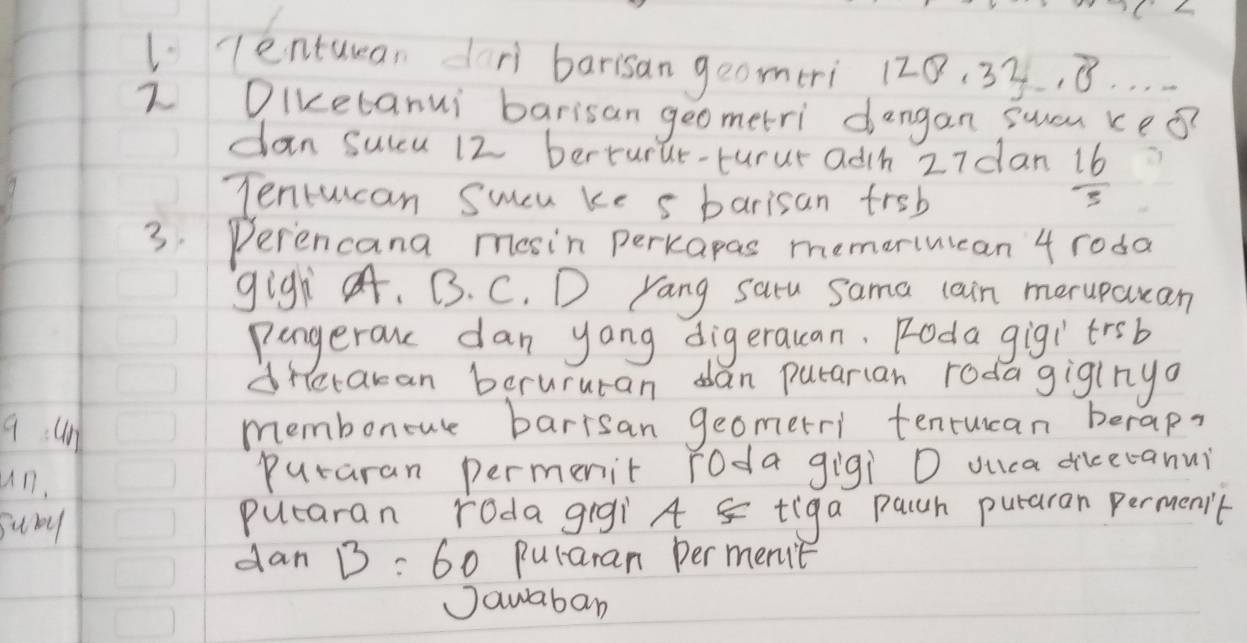 1. Tentukan dari barisan geometri 128, 32, 8....
2 Diketahui barisan geometri dengan suku ke 8
dan suku 12 berturut-turut adlh 27 dan 16/3
Tentukan suku ke 5 barisan trsb
3. Perencana mesin perkapas memerlukan 4 roda
gigi A. B. C. D yang satu sama lain merupakan
pengerak dan yang digerakan. Roda gigi trsb
diletakan berurutan dan putarlan roda giginya
membentuk barisan geometri tentukan berapa
putaran permenit roda gigi D jika diketahui
putaran roda gigi A tiga puluh putaran permenit
dan B = 60 putaran permenit
Jawaban
un.